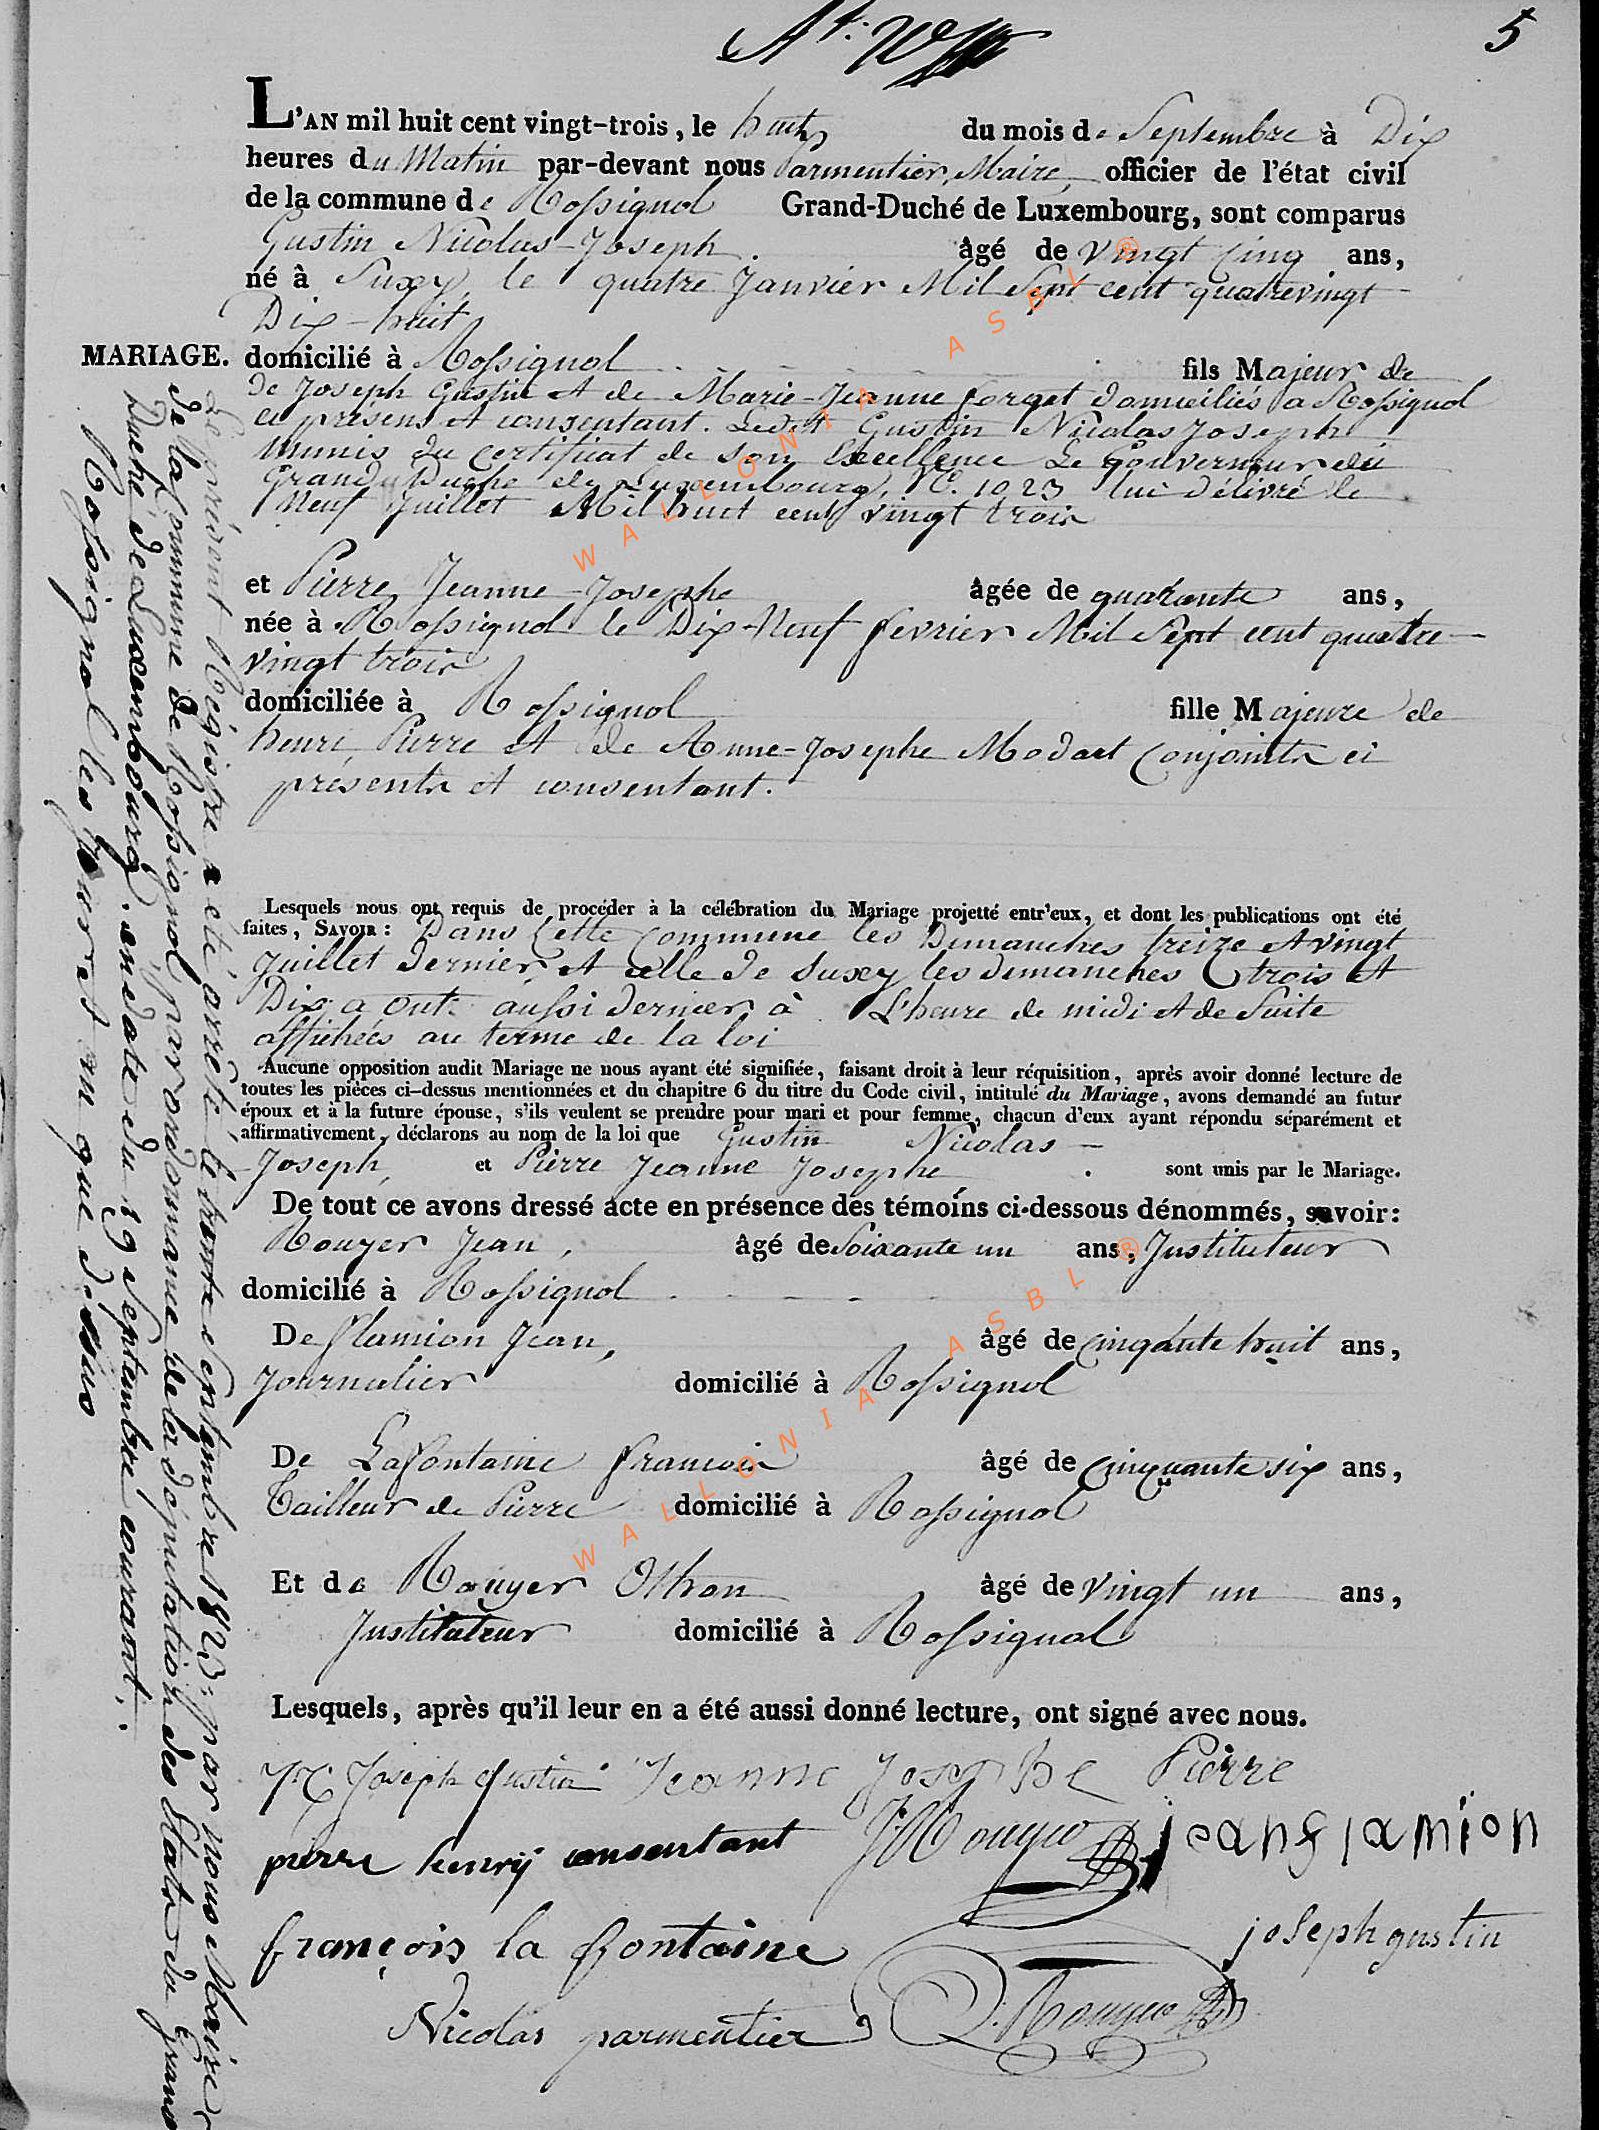 5
L'AN mil huit cent vingt-trois, le huit du mois de Septembre à Dix
heures du Matin par-devant nous Parmentier, Maire, officier de l'état civil
de la commune de Rossignol Grand-Duché de Luxembourg, sont comparus
Gustin Nicolas-Joseph. âgé de vingt cinq ans,
né à Suxy, le quatre Janvier Mil Sept cent quatrevingt
Dix-huit
MARIAGE. domicilié à Rossignol fils Majeur de
de Joseph Gustin et de Marie-Jeanne forget domiciliés a Rossignol
ci présens et consentant. Ledit Gustin Nicolas Joseph
munis du certificat de son Excellence Le Gouverneur du
Grand Duché de Luxembourg, N°. 1023 lui délivré le
Neuf Juillet Mil huit cent vingt trois
et Pierre, Jeanne-Josephe âgée de quarante ans,
née à Rossignol le Dix-Neuf fevrier Mil Sept cent quatre
vingt trois
domiciliée à Rossignol fille Majeure de
henri Pierre et de Anne-Josephe Modart Conjoints ci
présents et consentant.
Lesquels nous ont requis de procéder à la célébration du Mariage projetté entr'eux, et dont les publications ont été
faites, SAVOIR : Dans Cette Commune les Dimanches treize et vingt
Juillet dernier et celle de Suxy les dimanches trois et
Dix a out aussi dernier à L'heure de midi et de Suite
affichées au terme de la loi
Aucune opposition audit Mariage ne nous ayant été signifiée, faisant droit à leur réquisition, après avoir donné lecture de
toutes les pièces ci-dessus mentionnées et du chapitre 6 du titre du Code civil, intitulé du Mariage, avons demandé au futur
époux et à la future épouse, s'ils veulent se prendre pour mari et pour femme, chacun d'eux ayant répondu séparément et
affirmativement, déclarons au nom de la loi que Gustin Nicolas-
Joseph, et Pierre Jeanne Josephe. sont unis par le Mariage.
De tout ce avons dressé acte en présence des témoins ci-dessous dénommés, savoir:
Rouyer Jean, âgé de Soixante un ans, Instituteur
domicilié à Rossignol
De Flamion Jean, âgé de cinqante huit ans,
Journalier domicilié à Rossignol
De Lafontaine francois âgé de cinquante six ans,
Tailleur de Pierre domicilié à Rossignol
Et de Rouyer Othon âgé de vingt un ans,
Instituteur domicilié à Rossignol
Lesquels, après qu'il leur en a été aussi donné lecture, ont signé avec nous.
N Joseph Gustin Jeanne Josephe Pierre
pierre henrij consentant J. Rouyer jean flamion
françois la fontaine joseph gustin
Nicolas parmentier O. Rouyer
Le présent Régistre a été arrêté le trente Septembre 1823 par nous Maire
de la Commune de Rossignol par ordonnance de la députation des états du Grand
Duché de Luxembourg, en date du 19 Septembre courant.
Rossignol les jours et an que dessus
WALLONIA ASBL ®
WALLONIA ASBL ®